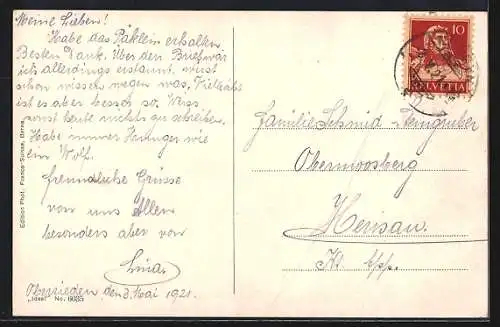 Meine Lieben!
Habe das Päklein erhalten
Besten Dank. Über den Brief wär
ich allerdings erstaunt, weist
schon wissen wegen was, Vielleicht
ist es aber besser so. Weiss
sonst heute nichts zu schreiben.
Habe immer Hunger wie
ein Wolf.
freundliche Grüsse
von uns Allen
besonders aber von
Lina.
Oberrieden den 3. Mai 1921.
Edition Phot. Franco-Suisse, Berne
„Ideal" No.
10
HELVETIA
Familie Schmid
Obermoosberg
Herisau.
Kt. App.